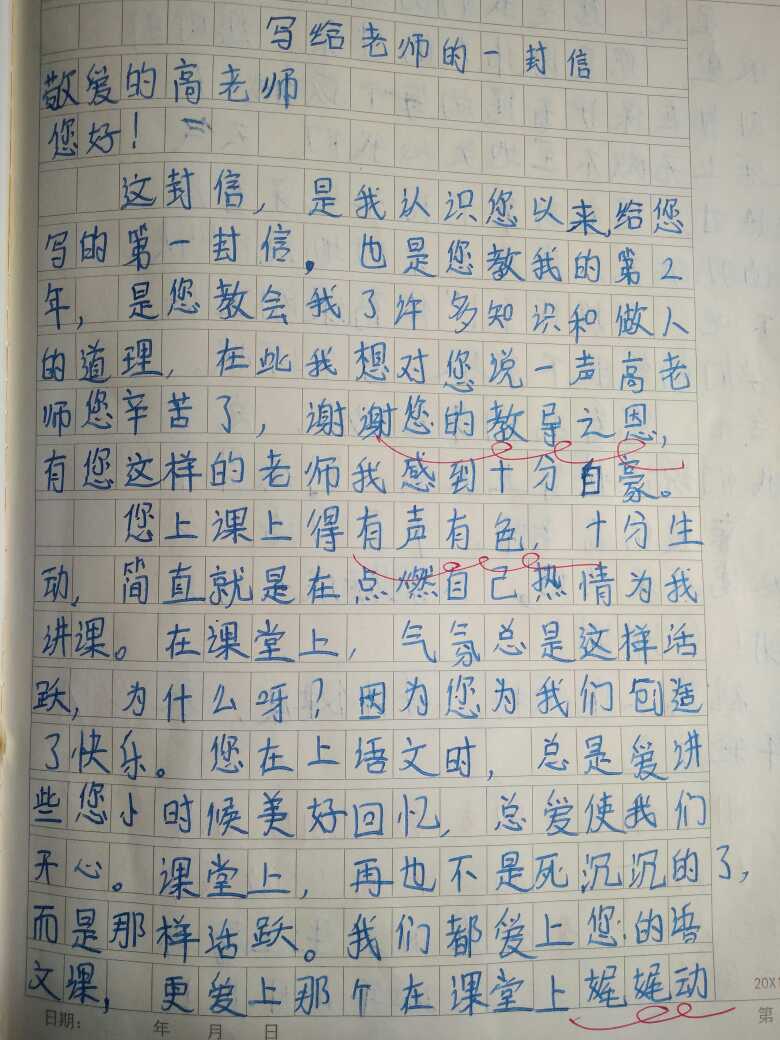 写给老师的一封信
敬爱的高老师
您好！
这封信，是我认识您以来,给您
写的第一封信，也是您教我的第2
年，是您教会我了许多知识和做人
的道理，在此我想对您说一声高老
师您辛苦了，谢谢您的教导之恩，
有您这样的老师我感到十分自豪。
您上课上得有声有色，十分生
动，简直就是在点燃自己热情为我
讲课。在课堂上，气氛总是这样活
跃，为什么呀？因为您为我们创造
了快乐。您在上语文时，总是爱讲
些您小时候美好回忆，总爱使我们
开心。课堂上，再也不是死沉沉的了，
而是那样活跃。我们都爱上您的语
文课，更爱上那个在课堂上娓娓动
20X1
日期： 年 月 日
第